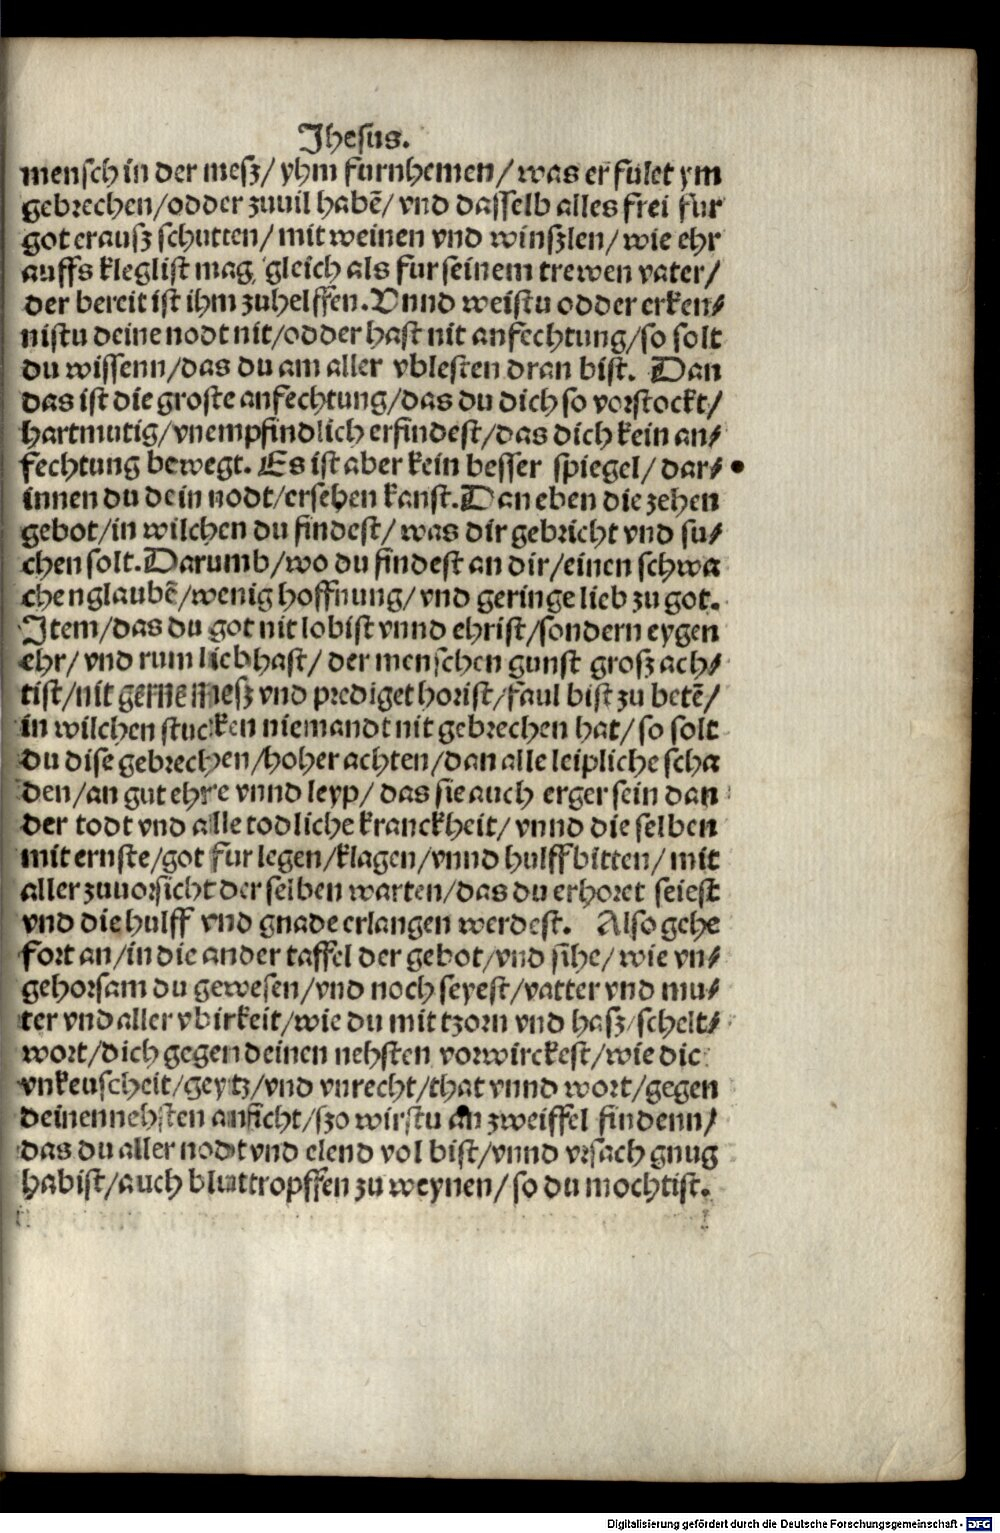 Jhesus.
mensch in der mesz/ yhm furnhemen/ was er fulet ym
gebrechen/odder zuuil habẽ/ vnd dasselb alles frei fur
got erausz schutten/ mit weinen vnd winszlen/ wie ehr
auffs kleglist mag/ gleich als fur seinem trewen vater/
der bereit ist ihm zuhelffen. Vnnd weistu odder erken/
nistu deine nodt nit/odder hast nit anfechtung/so solt
du wissenn/das du am aller vblesten dran bist. Dan
das ist die groste anfechtung/das du dich so vorstockt/
hartmutig/vnempfindlich erfindest/das dich kein an/
fechtung bewegt. Es ist aber kein besser spiegel/ dar/
innen du dein nodt/ersehen kanst. Dan eben die zehen
gebot/in wilchen du findest/ was dir gebricht vnd su/
chen solt. Darumb/wo du findest an dir/einen schwa
chen glaubẽ/wenig hoffnung/ vnd geringe lieb zu got.
Item/das du got nit lobist vnnd ehrist/sondern eygen
ehr/ vnd rum lieb hast/ der menschen gunst grosz ach/
tist/nit gerne mesz vnd prediget horist/faul bist zu betẽ/
in wilchen stucken niemandt nit gebrechen hat/ so solt
du dise gebrechen/hoher achten/dan alle leipliche scha
den/an gut ehre vnnd leyp/ das sie auch erger sein dan
der todt vnd alle todliche kranckheit/ vnnd die selben
mit ernste/got fur legen/klagen/vnnd hulff bitten/ mit
aller zuuorsicht der selben warten/das du erhoret seiest
vnd die hulff vnd gnade erlangen werdest. Also gehe
fort an/in die ander taffel der gebot/vnd sihe/ wie vn/
gehorsam du gewesen/vnd noch seyest/vatter vnd mu/
ter vnd aller vbirkeit/wie du mit tzorn vnd hasz/schelt/
wort/dich gegen deinen nehsten vorwirckest/wie die
vnkeuscheit/geytz/vnd vnrecht/that vnnd wort/gegen
deinen nehsten anficht/szo wirstu an zweiffel findenn/
das du aller nodt vnd elend vol bist/vnnd vrsach gnug
habist/auch bluttropffen zu weynen/so du mochtist.
Digitalisierung gefördert durch die Deutsche Forschungsgemeinschaft - DFG